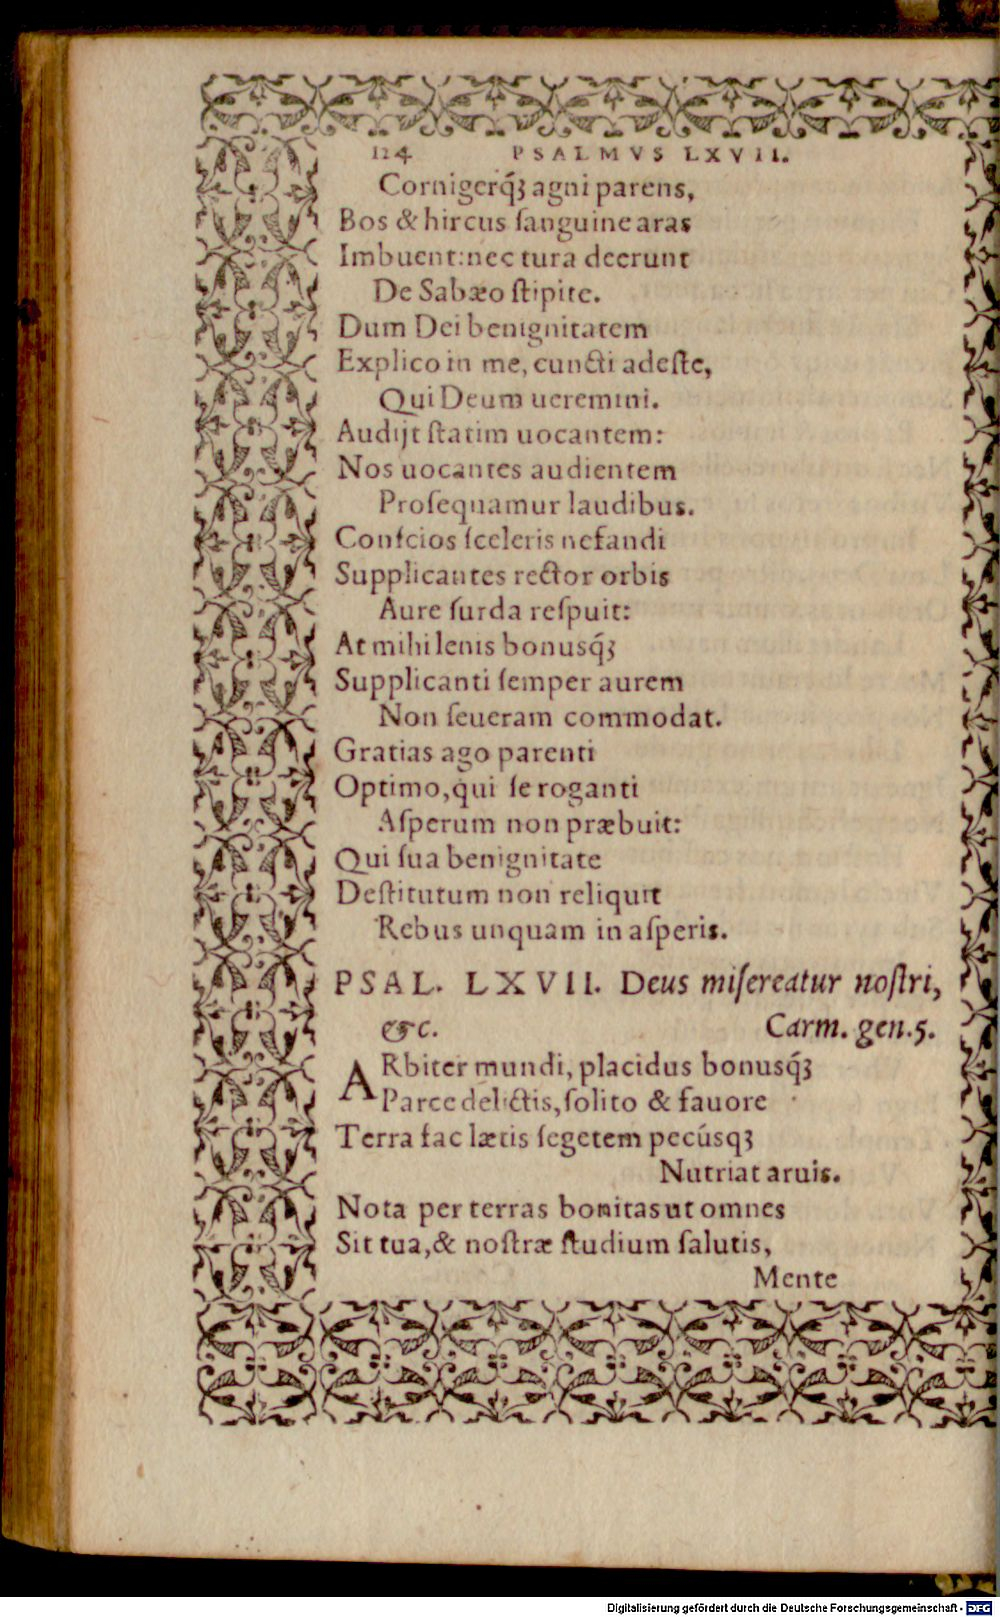 124 PSALMVS LXVII.
Cornigerq́ꝫ agni parens,
Bos & hircus ſanguine aras
Imbuent: nec tura deerunt
De Sabæo ſtipite.
Dum Dei benignitatem
Explico in me, cuncti adeſte,
Qui Deum ueremini.
Audijt ſtatim uocantem:
Nos uocantes audientem
Proſequamur laudibus.
Conſcios ſceleris nefandi
Supplicantes rector orbis
Aure ſurda reſpuit:
At mihi lenis bonusq́ꝫ
Supplicanti ſemper aurem
Non ſeueram commodat.
Gratias ago parenti
Optimo, qui ſe roganti
Aſperum non præbuit:
Qui ſua benignitate
Deſtitutum non reliquit
Rebus unquam in aſperis.
PSAL. LXVII. Deus miſereatur noſtri,
&c. Carm. gen. 5.
ARbiter mundi, placidus bonusq́ꝫ
Parce delictis, ſolito & fauore
Terra fac lætis ſegetem pecúsqꝫ
Nutriat aruis.
Nota per terras bonitas ut omnes
Sit tua, & noſtræ ſtudium ſalutis,
Mente
Digitalisierung gefördert durch die Deutsche Forschungsgemeinschaft - DFG